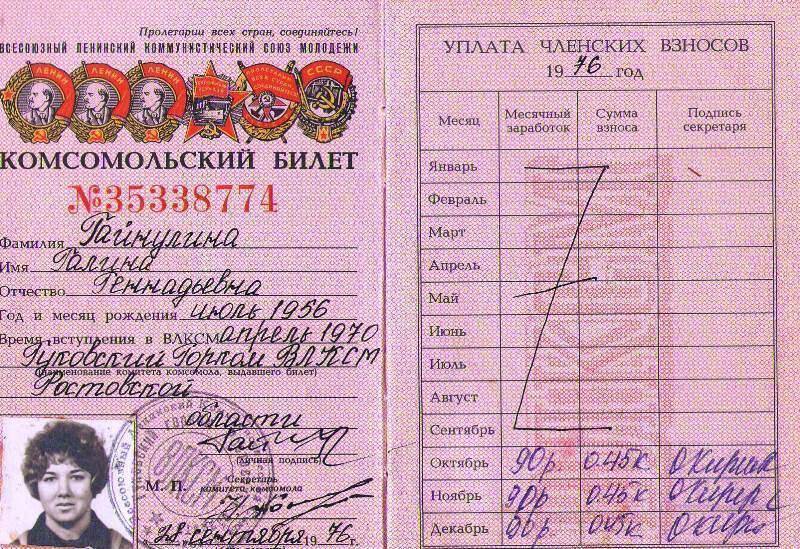 Пролетарии всех стран, соединяйтесь!
ВСЕСОЮЗНЫЙ ЛЕНИНСКИЙ КОММУНИСТИЧЕСКИЙ СОЮЗ МОЛОДЕЖИ
ЛЕНИН ЛЕНИН ЛЕНИН СССР
КОМСОМОЛЬСКИЙ БИЛЕТ
№35338774
Фамилия Гайнулина
Имя Галина
Отчество Геннадьевна
Год и месяц рождения июль 1956
Время вступления в ВЛКСМ апрель 1970
Гуковский Горком ВЛКСМ
(наименование комитета комсомола, выдавшего билет)
Ростовской
области
(личная подпись)
М. П.
Секретарь
комитета комсомола
28 сентября 1976 г.
УПЛАТА ЧЛЕНСКИХ ВЗНОСОВ
1976 год
Месяц Месячный заработок Сумма взноса Подпись секретаря
Январь
Февраль
Март
Апрель
Май
Июнь
Июль
Август
Сентябрь
Октябрь 90р 0.45к
Ноябрь 90р 0.45к
Декабрь 0.45к